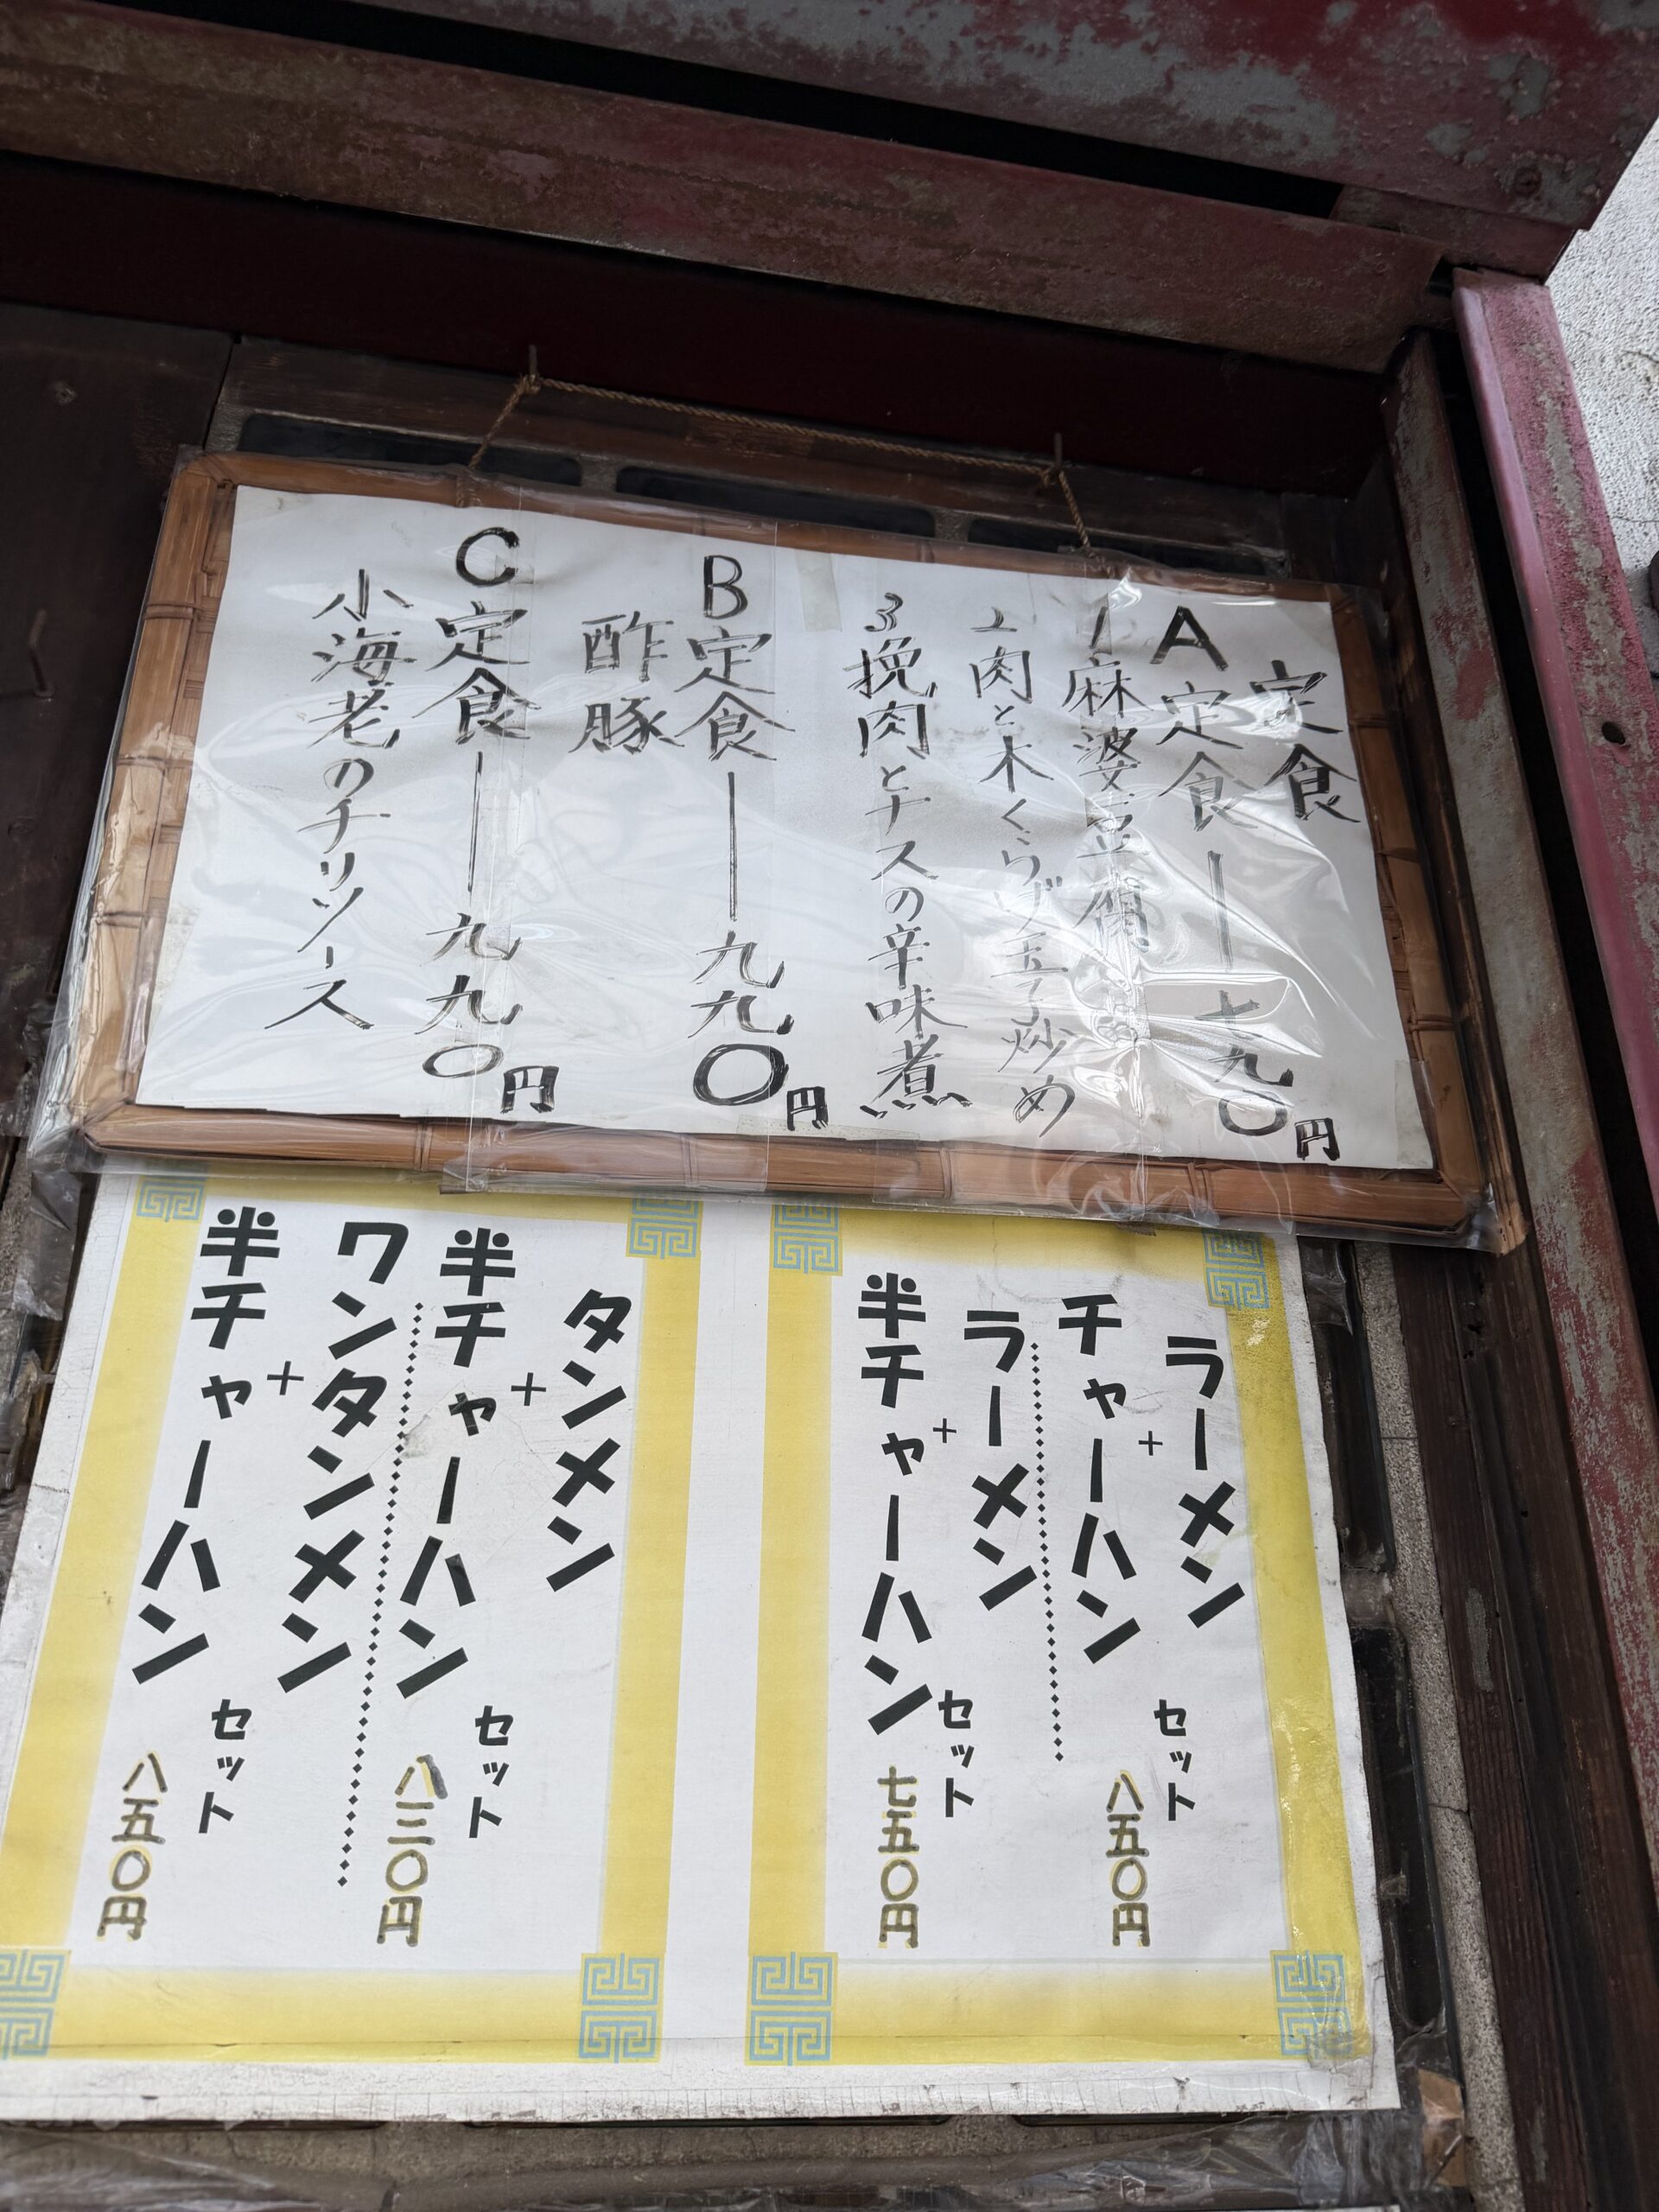 定食
A定食ー七九〇円
1麻婆豆腐
2肉と木くらげ玉子炒め
3挽肉とナスの辛味煮
B定食ー九九〇円
酢豚
C定食ー九九〇円
小海老のチリソース
ラーメン
+
チャーハン
セット
八五〇円
ラーメン
+
半チャーハン
セット
七五〇円
タンメン
+
半チャーハン
セット
八三〇円
ワンタンメン
+
半チャーハン
セット
八五〇円